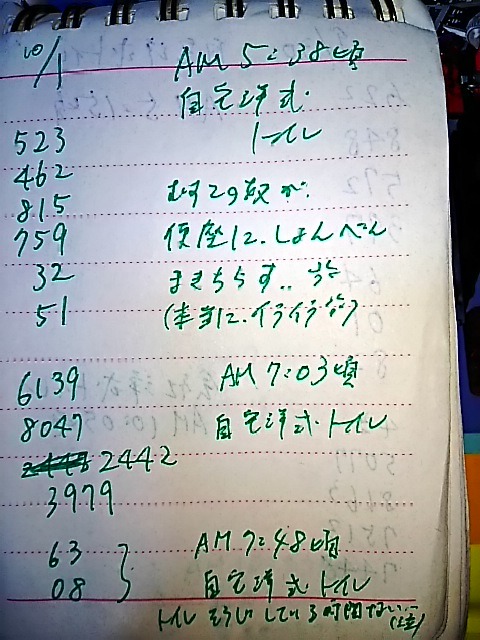 10/1 AM 5:38頃
自宅洋式
トイレ
523
462
815 むすこの奴が、
759 便座に、しょんべん
32 まきちらす..
51 (本当に、イライラ
6139 AM 7:03頃
8047 自宅洋式トイレ
2442
3979
63 AM 7:48頃
08 自宅洋式トイレ
トイレそうじしている時間ない…(泣)